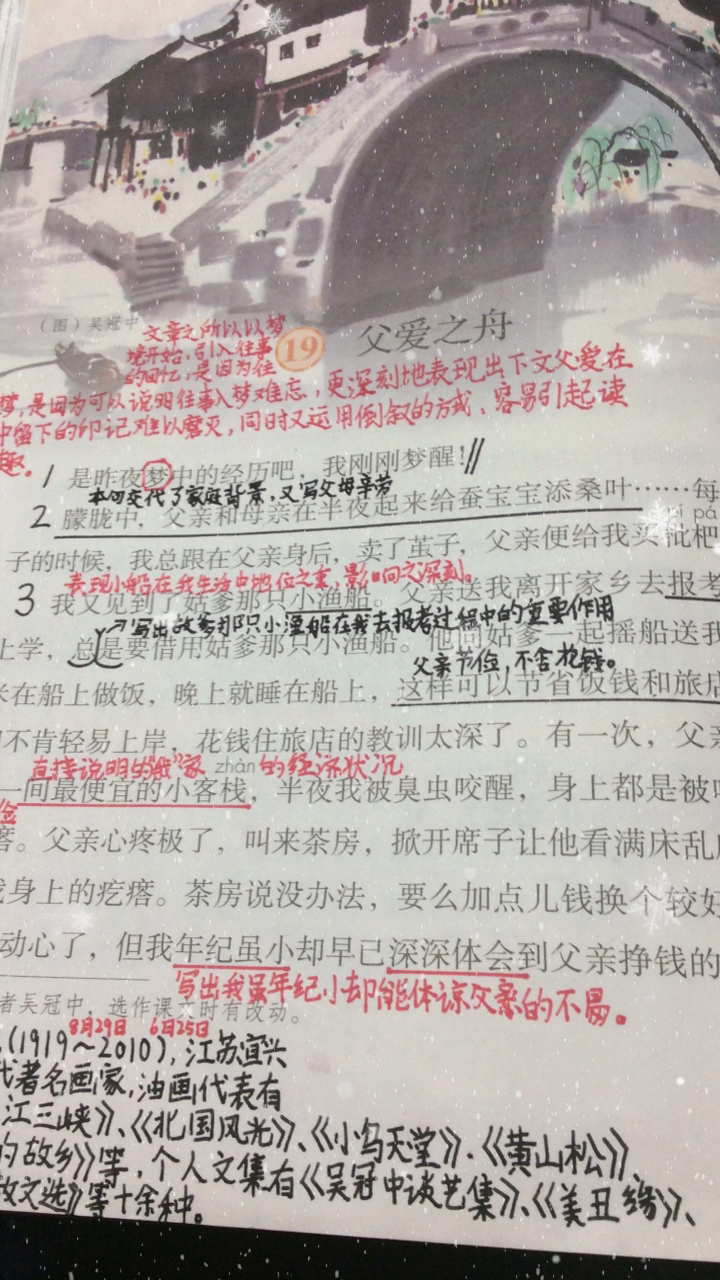 (图)吴冠中
文章之所以以梦
境开始,引入往事
的回忆,是因为往
19
父爱之舟
梦,是因为可以说明往事入梦难忘,更深刻地表现出下文父爱在
中留下的印记难以磨灭,同时又运用倒叙的方式、容易引起读
趣。
1 是昨夜梦中的经历吧,我刚刚梦醒!
本句交代了家庭背景,又写父母辛劳
2 朦胧中,父亲和母亲在半夜起来给蚕宝宝添桑叶……每
pí pá
子的时候,我总跟在父亲身后,卖了茧子,父亲便给我买枇杷
表现小船在我生活中地位之重,影响之深刻。
3 我又见到了姑爹那只小渔船。父亲送我离开家乡去报考
写出姑爹那只小渔船在我去报考过程中的重要作用
上学,总是要借用姑爹那只小渔船。他同姑爹一起摇船送我
父亲节俭,不舍花钱。
米在船上做饭,晚上就睡在船上,这样可以节省饭钱和旅店
不肯轻易上岸,花钱住旅店的教训太深了。有一次,父亲
直接说明的"我"家的经济状况
zhàn
一间最便宜的小客栈,半夜我被臭虫咬醒,身上都是被
俭
瘩。父亲心疼极了,叫来茶房,掀开席子让他看满床乱
我身上的疙瘩。茶房说没办法,要么加点儿钱换个较好
动心了,但我年纪虽小却早已深深体会到父亲挣钱的
写出我虽年纪小却能体谅父亲的不易。
者吴冠中,选作课文时有改动。
8月29日 6月25日
(1919~2010),江苏宜兴
代著名画家,油画代表有
江三峡》、《北国风光》、《小鸟天堂》、《黄山松》、
的故乡》等,个人文集有《吴冠中谈艺集》、《美丑缘》、
散文选》等十余种。